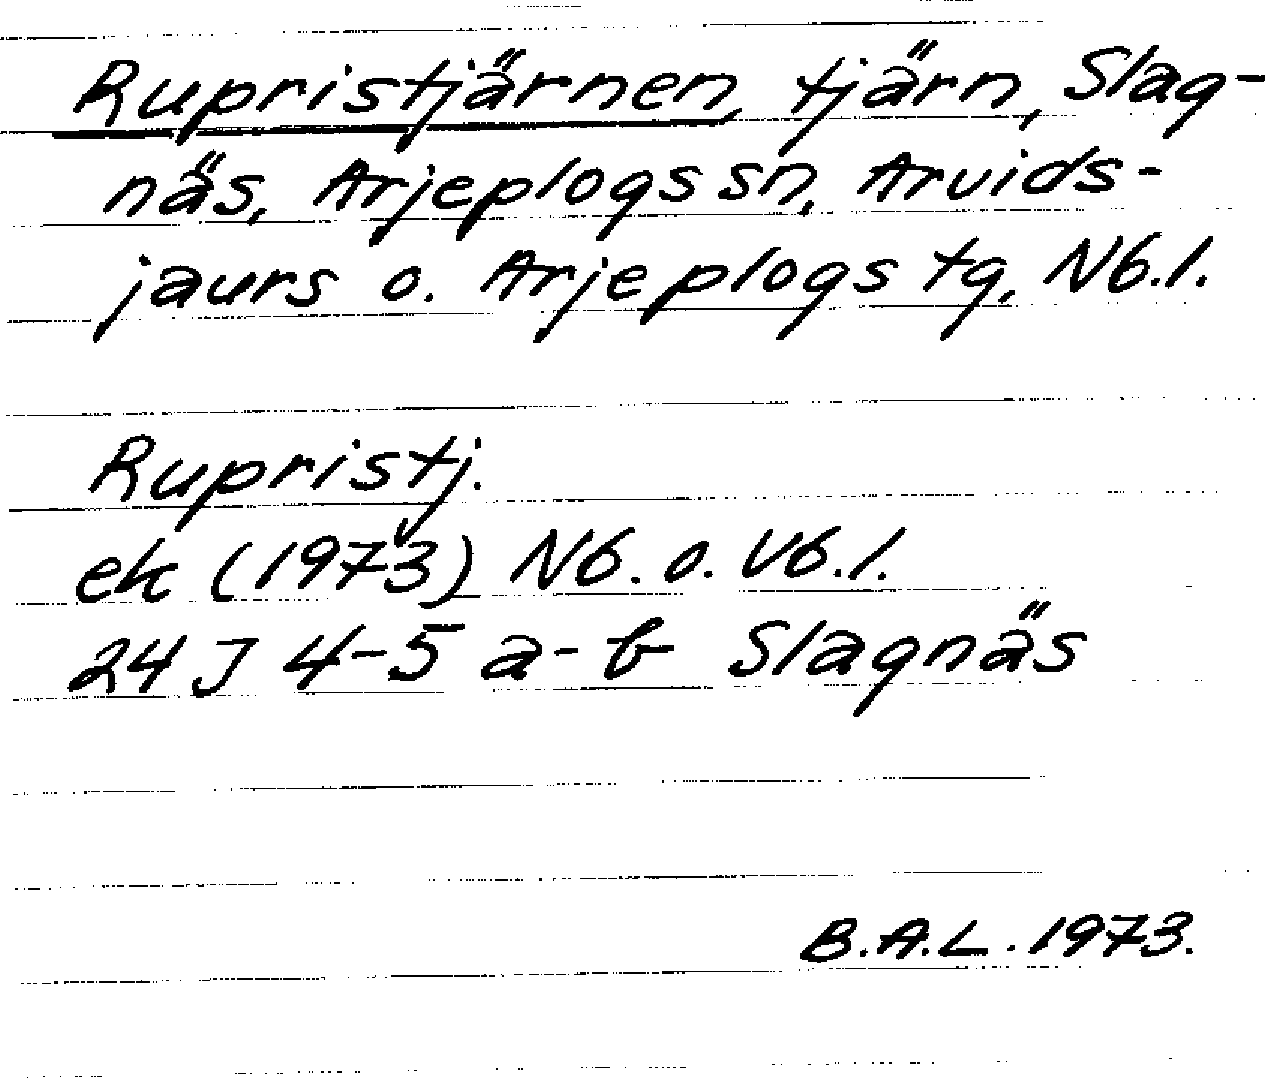 Rupristjärnen, tjärn, Slag-
näs, Arjeplogs sn, Arvids-
jaurs o. Arjeplogs tg, Nb.l.
Rupristj.
ek (1973) Nb. o. Vb.l.
24 J 4-5 a-b Slagnäs
B.A.L. 1973.